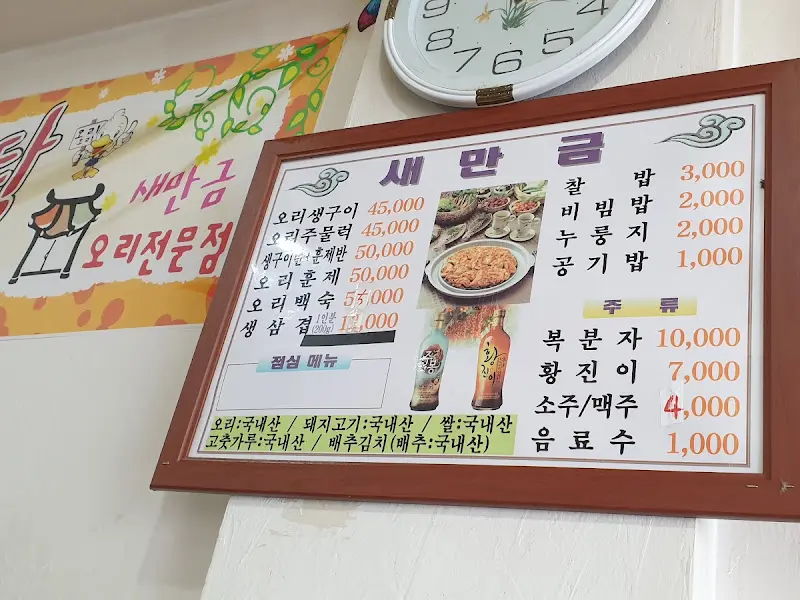 9 8 7 6 5 4
탕
새만금
오리전문점
새만금
오리생구이 45,000
오리주물럭 45,000
생구이반+훈제반 50,000
오리훈제 50,000
오리백숙 55,000
생삼겹 1인분(200g) 12,000
점심 메뉴
찰밥 3,000
비빔밥 2,000
누룽지 2,000
공기밥 1,000
주류
복분자 10,000
황진이 7,000
소주/맥주 4,000
음료수 1,000
황진이
오리:국내산 / 돼지고기:국내산 / 쌀:국내산
고춧가루:국내산 / 배추김치(배추:국내산)